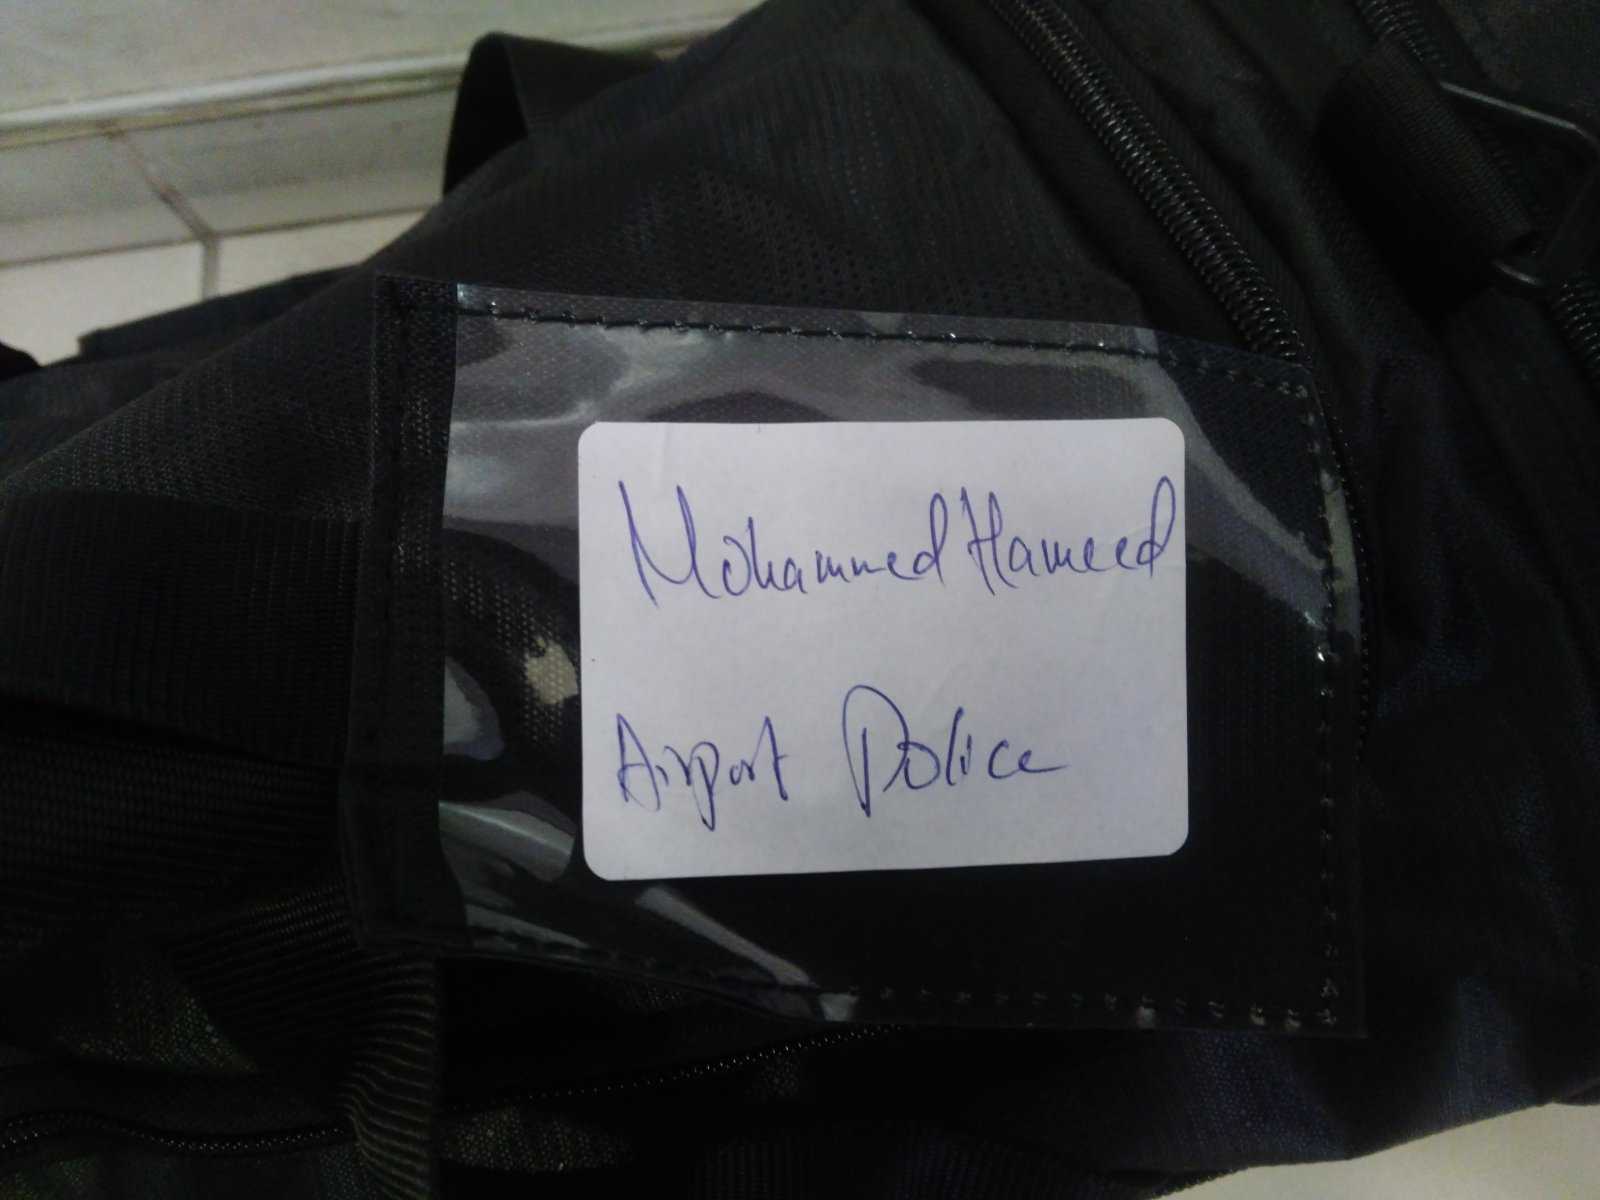 Mohammed Hameed
Airport Police